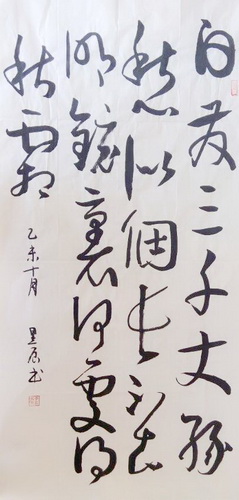 白發三千丈緣
愁似個長不知
明鏡裏何處得
秋霜
乙未十月 星辰书